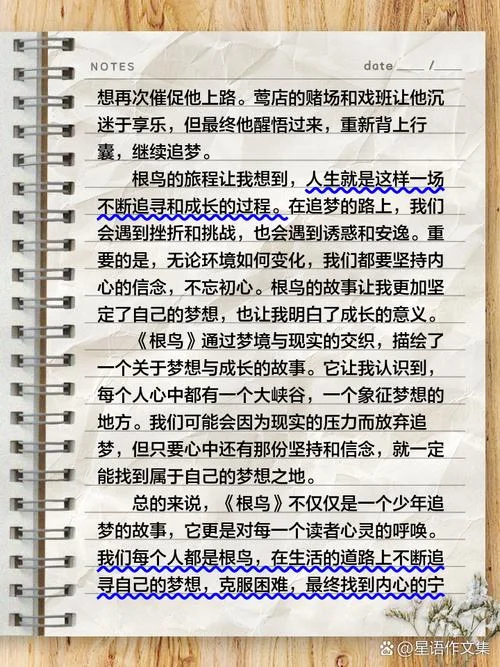 NOTES
date /
想再次催促他上路。莺店的赌场和戏班让他沉
迷于享乐，但最终他醒悟过来，重新背上行
囊，继续追梦。
根鸟的旅程让我想到，人生就是这样一场
不断追寻和成长的过程。在追梦的路上，我们
会遇到挫折和挑战，也会遇到诱惑和安逸。重
要的是，无论环境如何变化，我们都要坚持内
心的信念，不忘初心。根鸟的故事让我更加坚
定了自己的梦想，也让我明白了成长的意义。
《根鸟》通过梦境与现实的交织，描绘了
一个关于梦想与成长的故事。它让我认识到，
每个人心中都有一个大峡谷，一个象征梦想的
地方。我们可能会因为现实的压力而放弃追
梦，但只要心中还有那份坚持和信念，就一定
能找到属于自己的梦想之地。
总的来说，《根鸟》不仅仅是一个少年追
梦的故事，它更是对每一个读者心灵的呼唤。
我们每个人都是根鸟，在生活的道路上不断追
寻自己的梦想，克服困难，最终找到内心的宁
@星语作文集